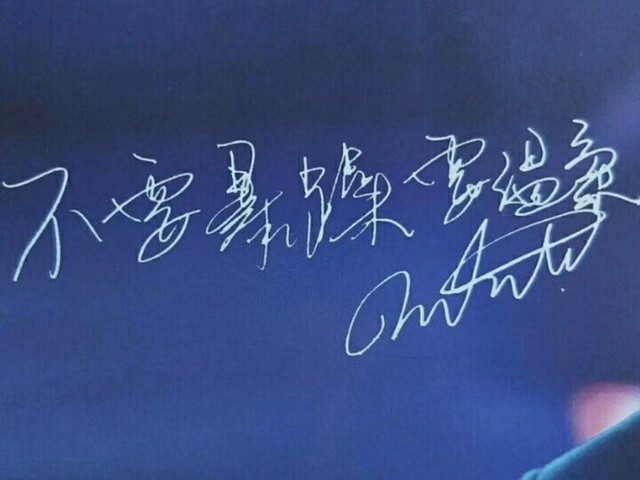 不要暴躁 要温柔